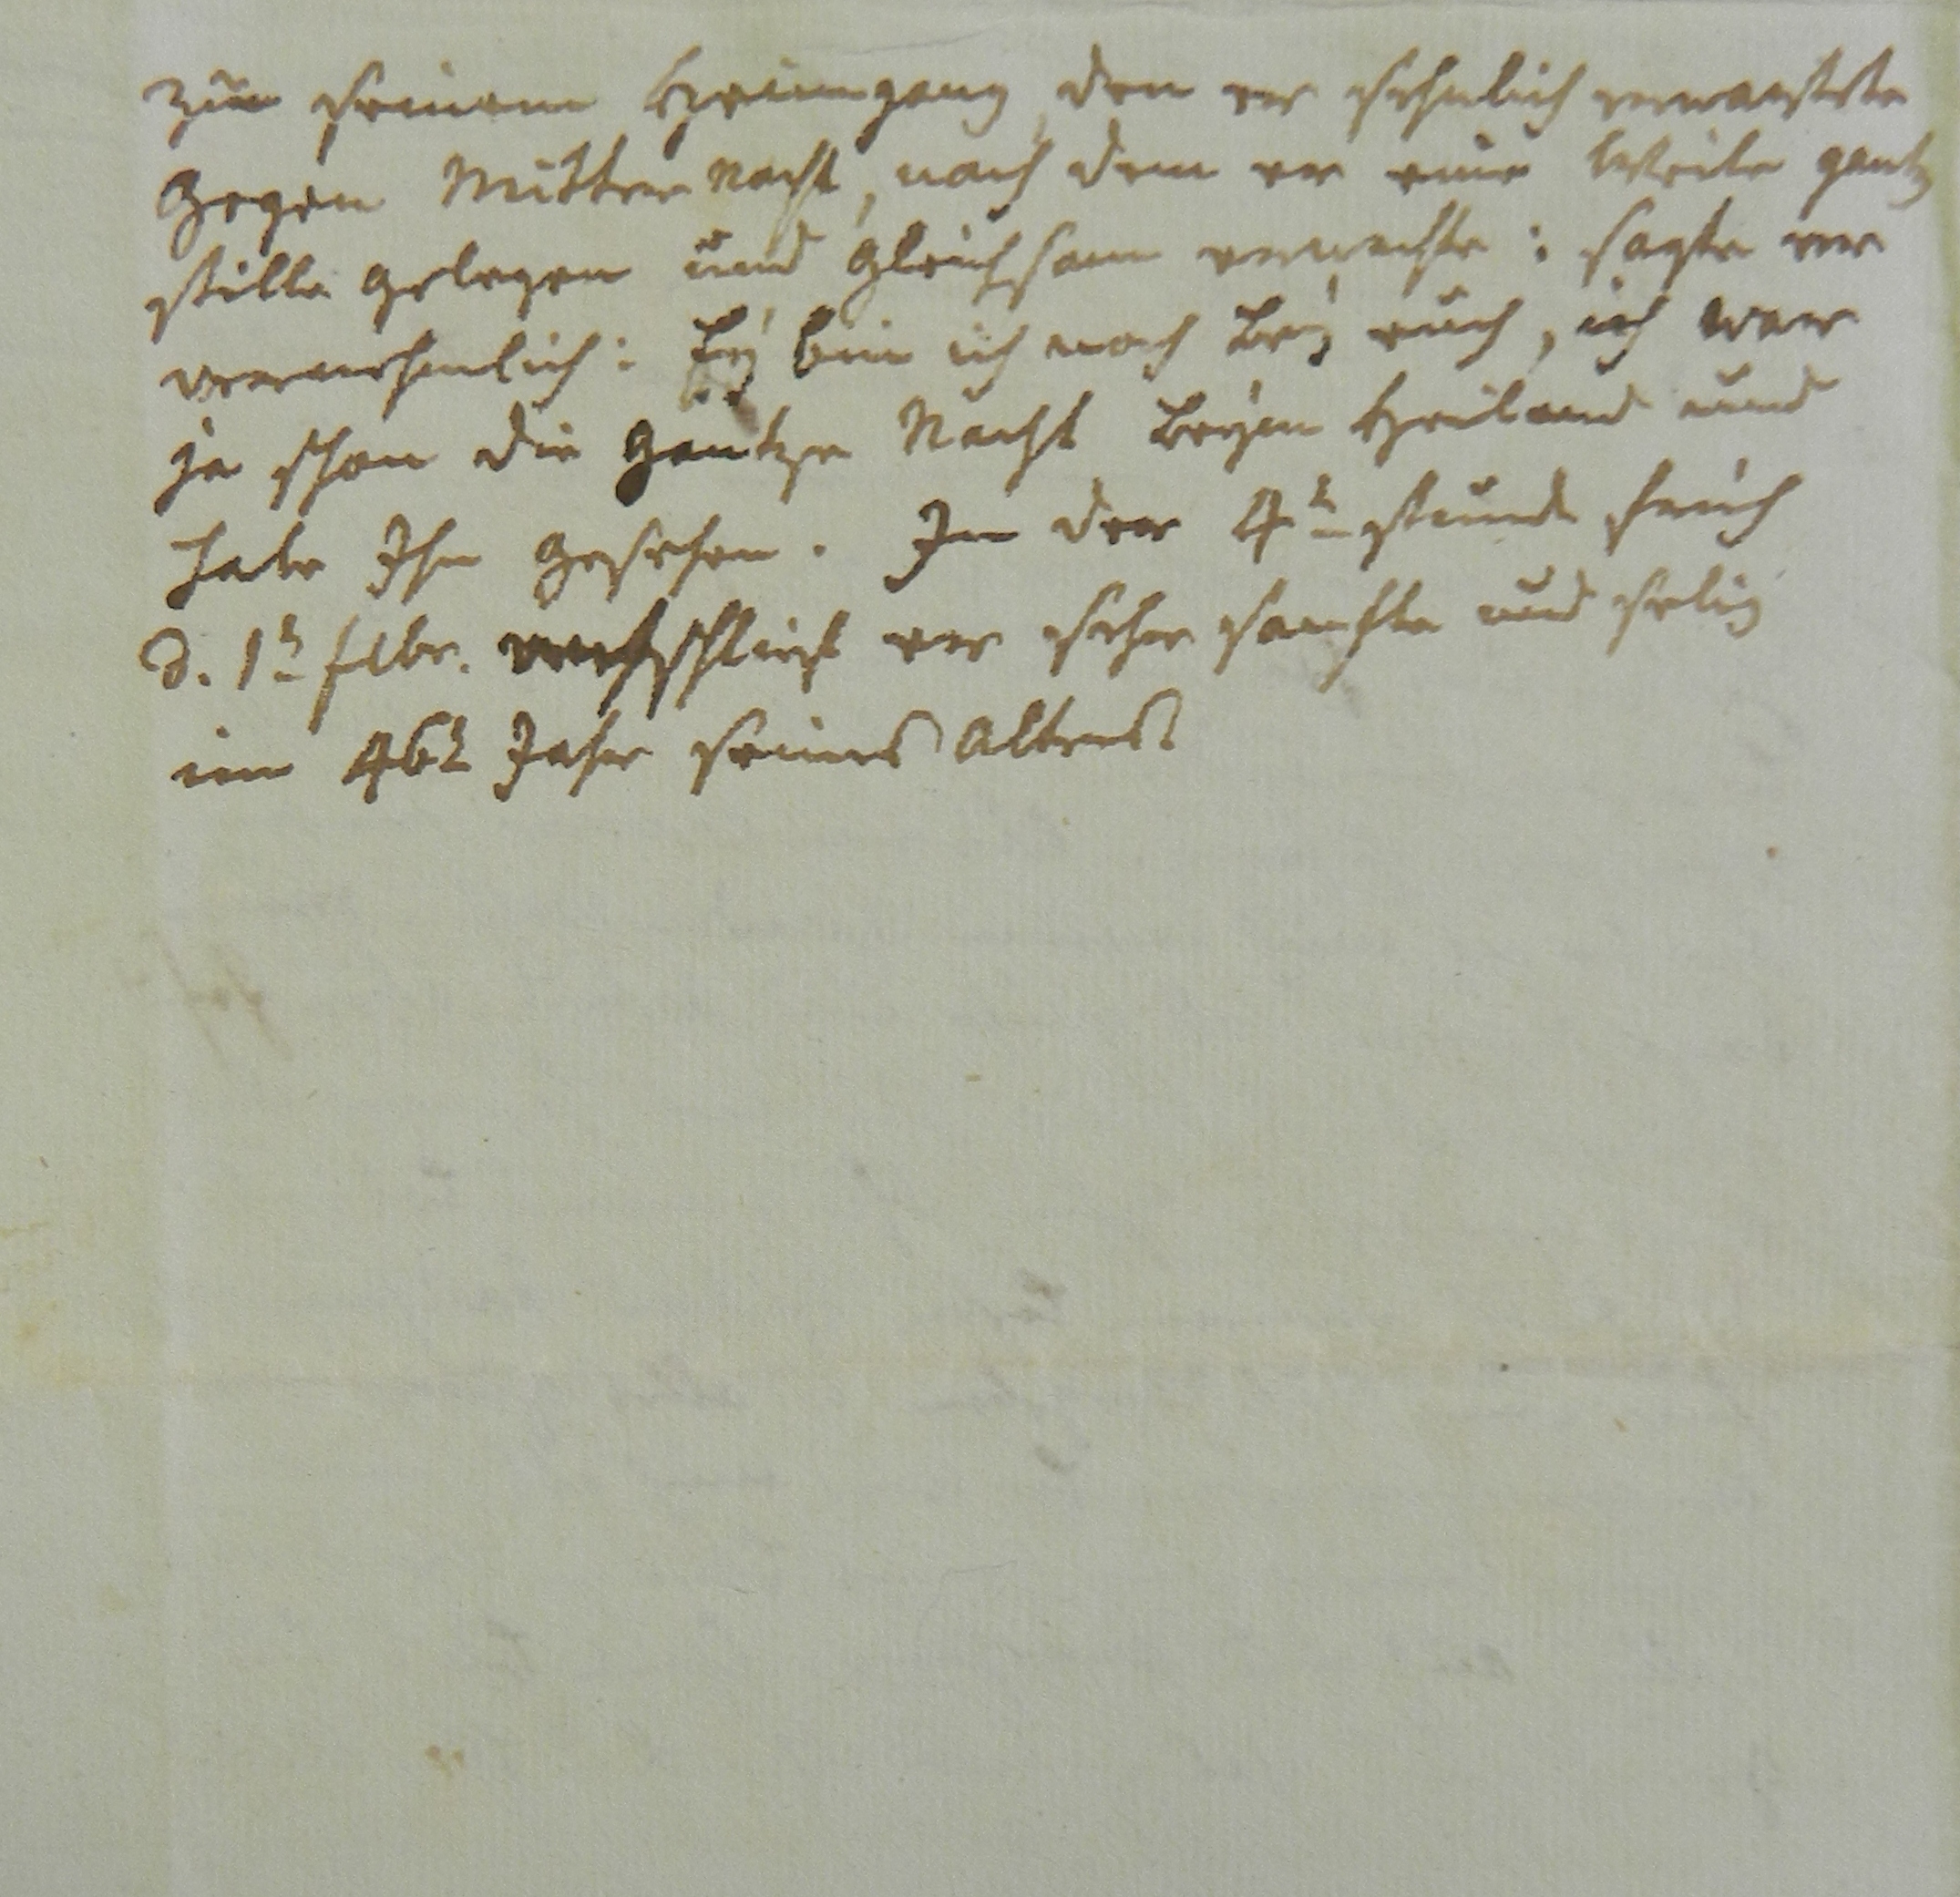 zu seinem Heimgang, den er sehnlich erwartete
Gegen Mitter Nacht, nach dem er eine Weile gantz
stille gelegen und gleichsam erwachte: sagte er
vernehmlich: Ey bin ich noch bey euch, ich war
ja schon die gantze Nacht beym Heiland und
habe Ihn gesehen. In der 4t stunde früh
d. 1t febr. entschlief er sehr sanfte und selig
im 46t Jahr seines Alters.